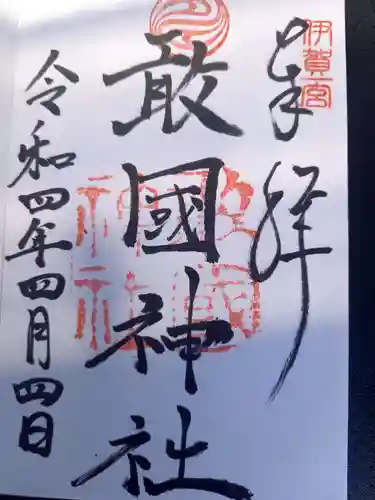 伊賀一宮
奉拝
敢國神社
令和四年四月四日